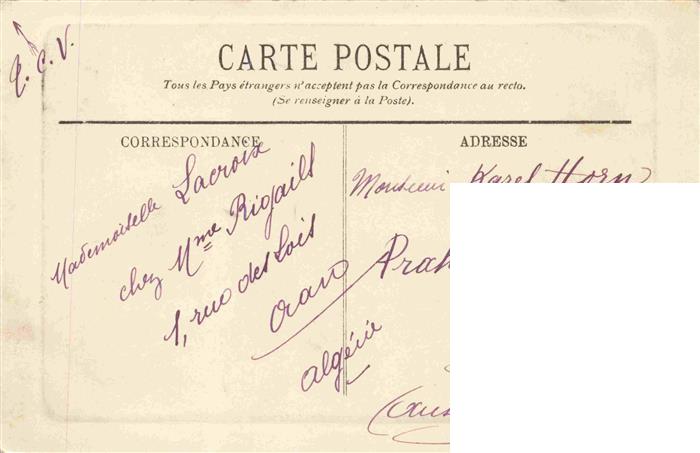 T. C. V.
CARTE POSTALE
Tous les Pays étrangers n'acceptent pas la Correspondance au recto.
(Se renseigner à la Poste).
CORRESPONDANCE
Mademoiselle Lacroix
chez Mme Rigaill
1, rue des Lois
Oran
Algérie
ADRESSE
Monsieur Karel Horn